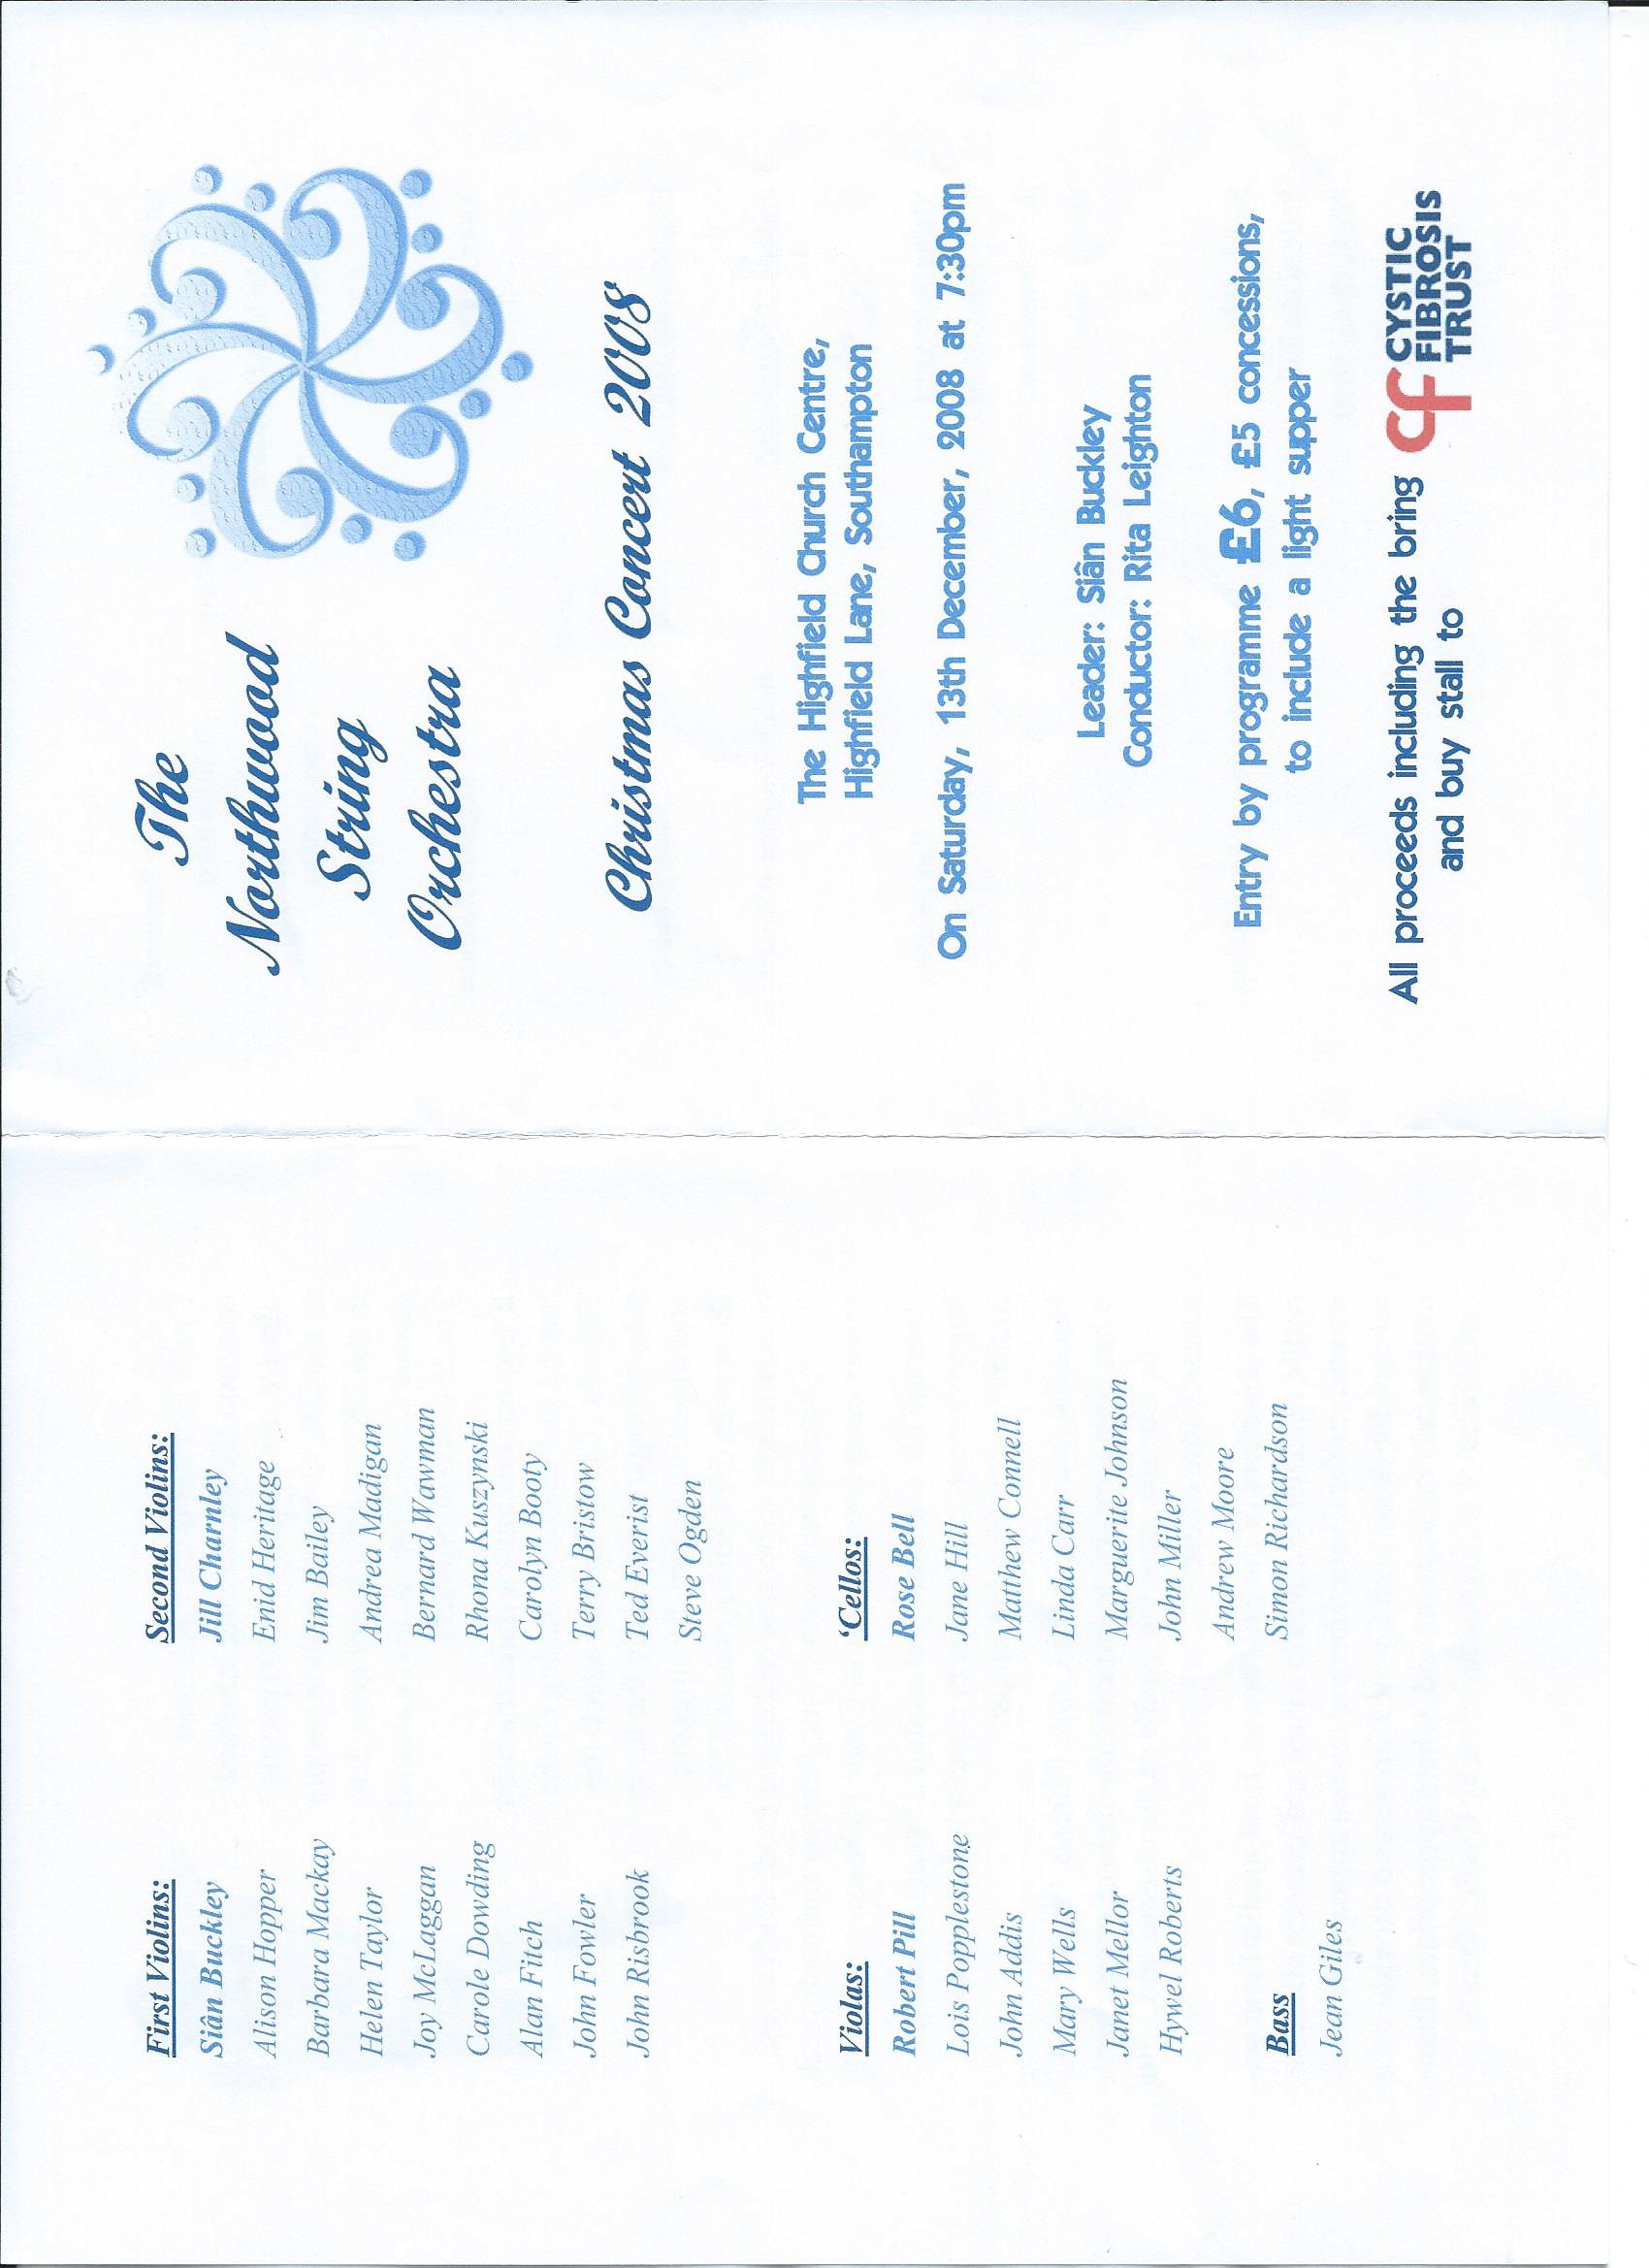 First Violins:
Siân Buckley
Alison Hopper
Barbara Mackay
Helen Taylor
Joy McLaggan
Carole Dowding
Alan Fitch
John Fowler
John Risbrook
Second Violins:
Jill Charnley
Enid Heritage
Jim Bailey
Andrea Madigan
Bernard Wawman
Rhona Kuszynski
Carolyn Booty
Terry Bristow
Ted Everist
Steve Ogden
Violas:
Robert Pill
Lois Popplestone
John Addis
Mary Wells
Janet Mellor
Hywel Roberts
Bass
Jean Giles
‘Cellos:
Rose Bell
Jane Hill
Matthew Connell
Linda Carr
Marguerite Johnson
John Miller
Andrew Moore
Simon Richardson
The
Northwood
String
Orchestra
Christmas Concert 2008
The Highfield Church Centre,
Highfield Lane, Southampton
On Saturday, 13th December, 2008 at 7:30pm
Leader: Siân Buckley
Conductor: Rita Leighton
Entry by programme £6, £5 concessions,
to include a light supper
All proceeds including the bring
and buy stall to
cf CYSTIC
FIBROSIS
TRUST